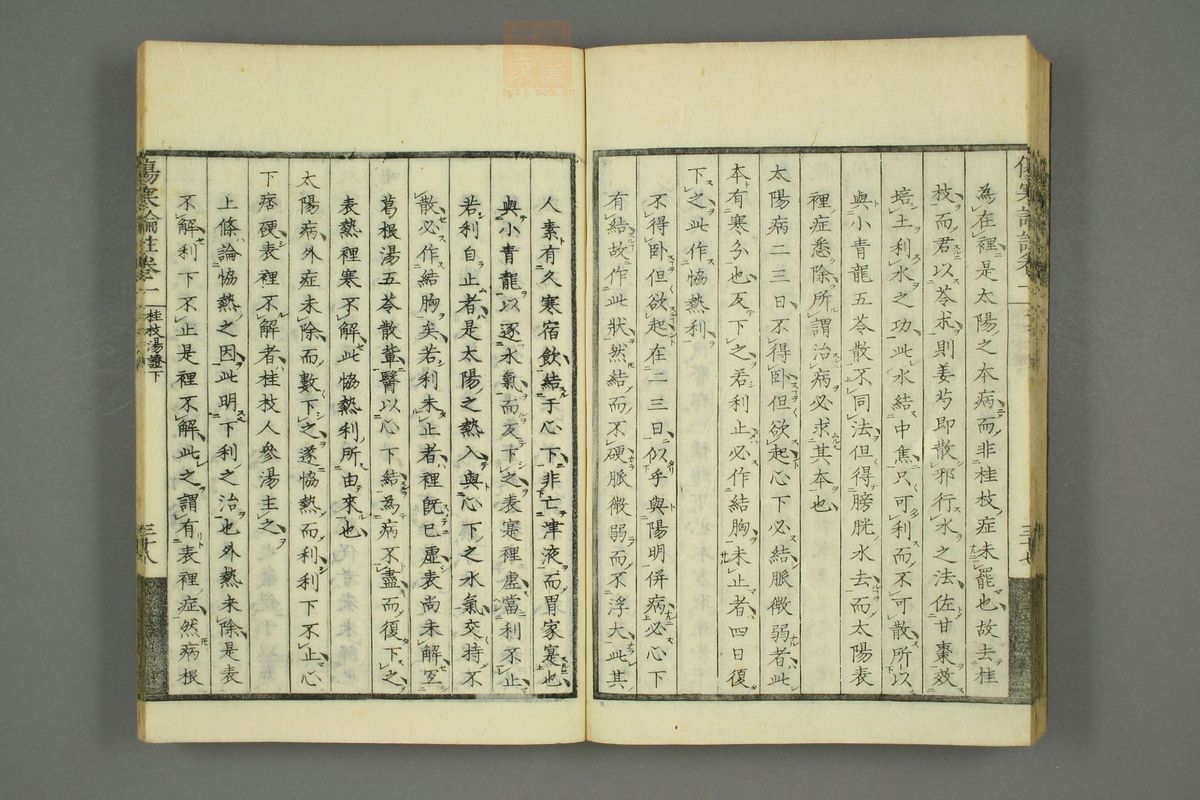 為在裡是太陽之本病而非桂枝症未罷也故去桂
枝而君以苓求則姜芍即散邪行水之法佐甘棗效
培土利水之功此水結中焦只可利而不可散所以
與小青龍五苓散不同法但得膀胱水去而太陽表
裡症悉除所謂治病必求其本也
太陽病二三日不得臥但欲起心下必結脈微弱者此
本有寒分也反下之若利止必作結胸未止者四日復
下之此作協熱利
不得臥但欲起在二三日似乎與陽明併病必心下
有結故作此狀然結而不硬脈微弱而不浮大此其
人素有久寒宿飲結于心下非亡津液而胃家寔也
與小青龍以逐水氣而反下之表寔裡虛當利不止
若利自止者是太陽之熱入與心下之水氣交持不
散必作結胸矣若利未止者裡既已虛表尚未解宜
葛根湯五苓散輩醫以心下結為病不盡而復下之
表熱裡寒不解此協熱利所由來也
太陽病外症未除而數下之遂協熱而利利下不止心
下痞硬表裡不解者桂枝人參湯主之
上條論協熱之因此明下利之治也外熱未除是表
不解利下不止是裡不解此之謂有表裡症然病根
桂枝湯證下
三十八